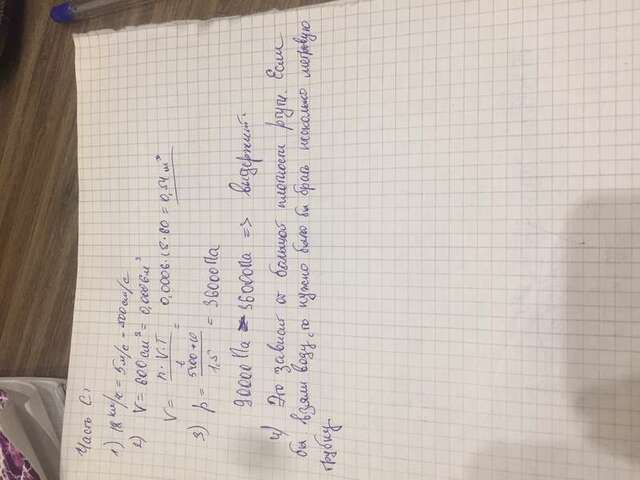 Часть С1
1) 18 км/ч = 5 м/с = 500 см/с
2) V = 600 см³ = 0,0006 м³
V = n·V·T / t = 0,0006·15·60 = 0,54 м³
3) p = 5400·10 / 1,5 = 36000 Па
90000 Па 36000 Па => выдержит.
4) Это зависит от большой плотности ртути. Если
бы взяли воду, то нужно было бы брать несколько метровую
трубку